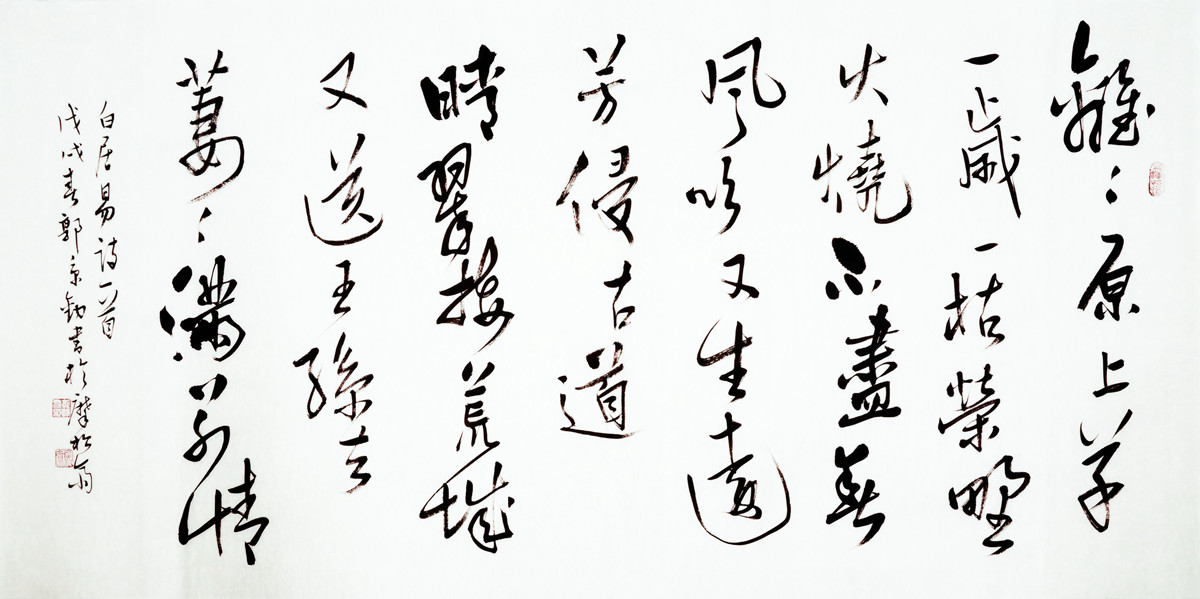 離〻原上草
一歲一枯榮野
火燒不盡春
風吹又生遠
芳侵古道
晴翠接荒城
又送王孫去
萋〻滿別情
白居易詩一首
戊戌春郭京書於松